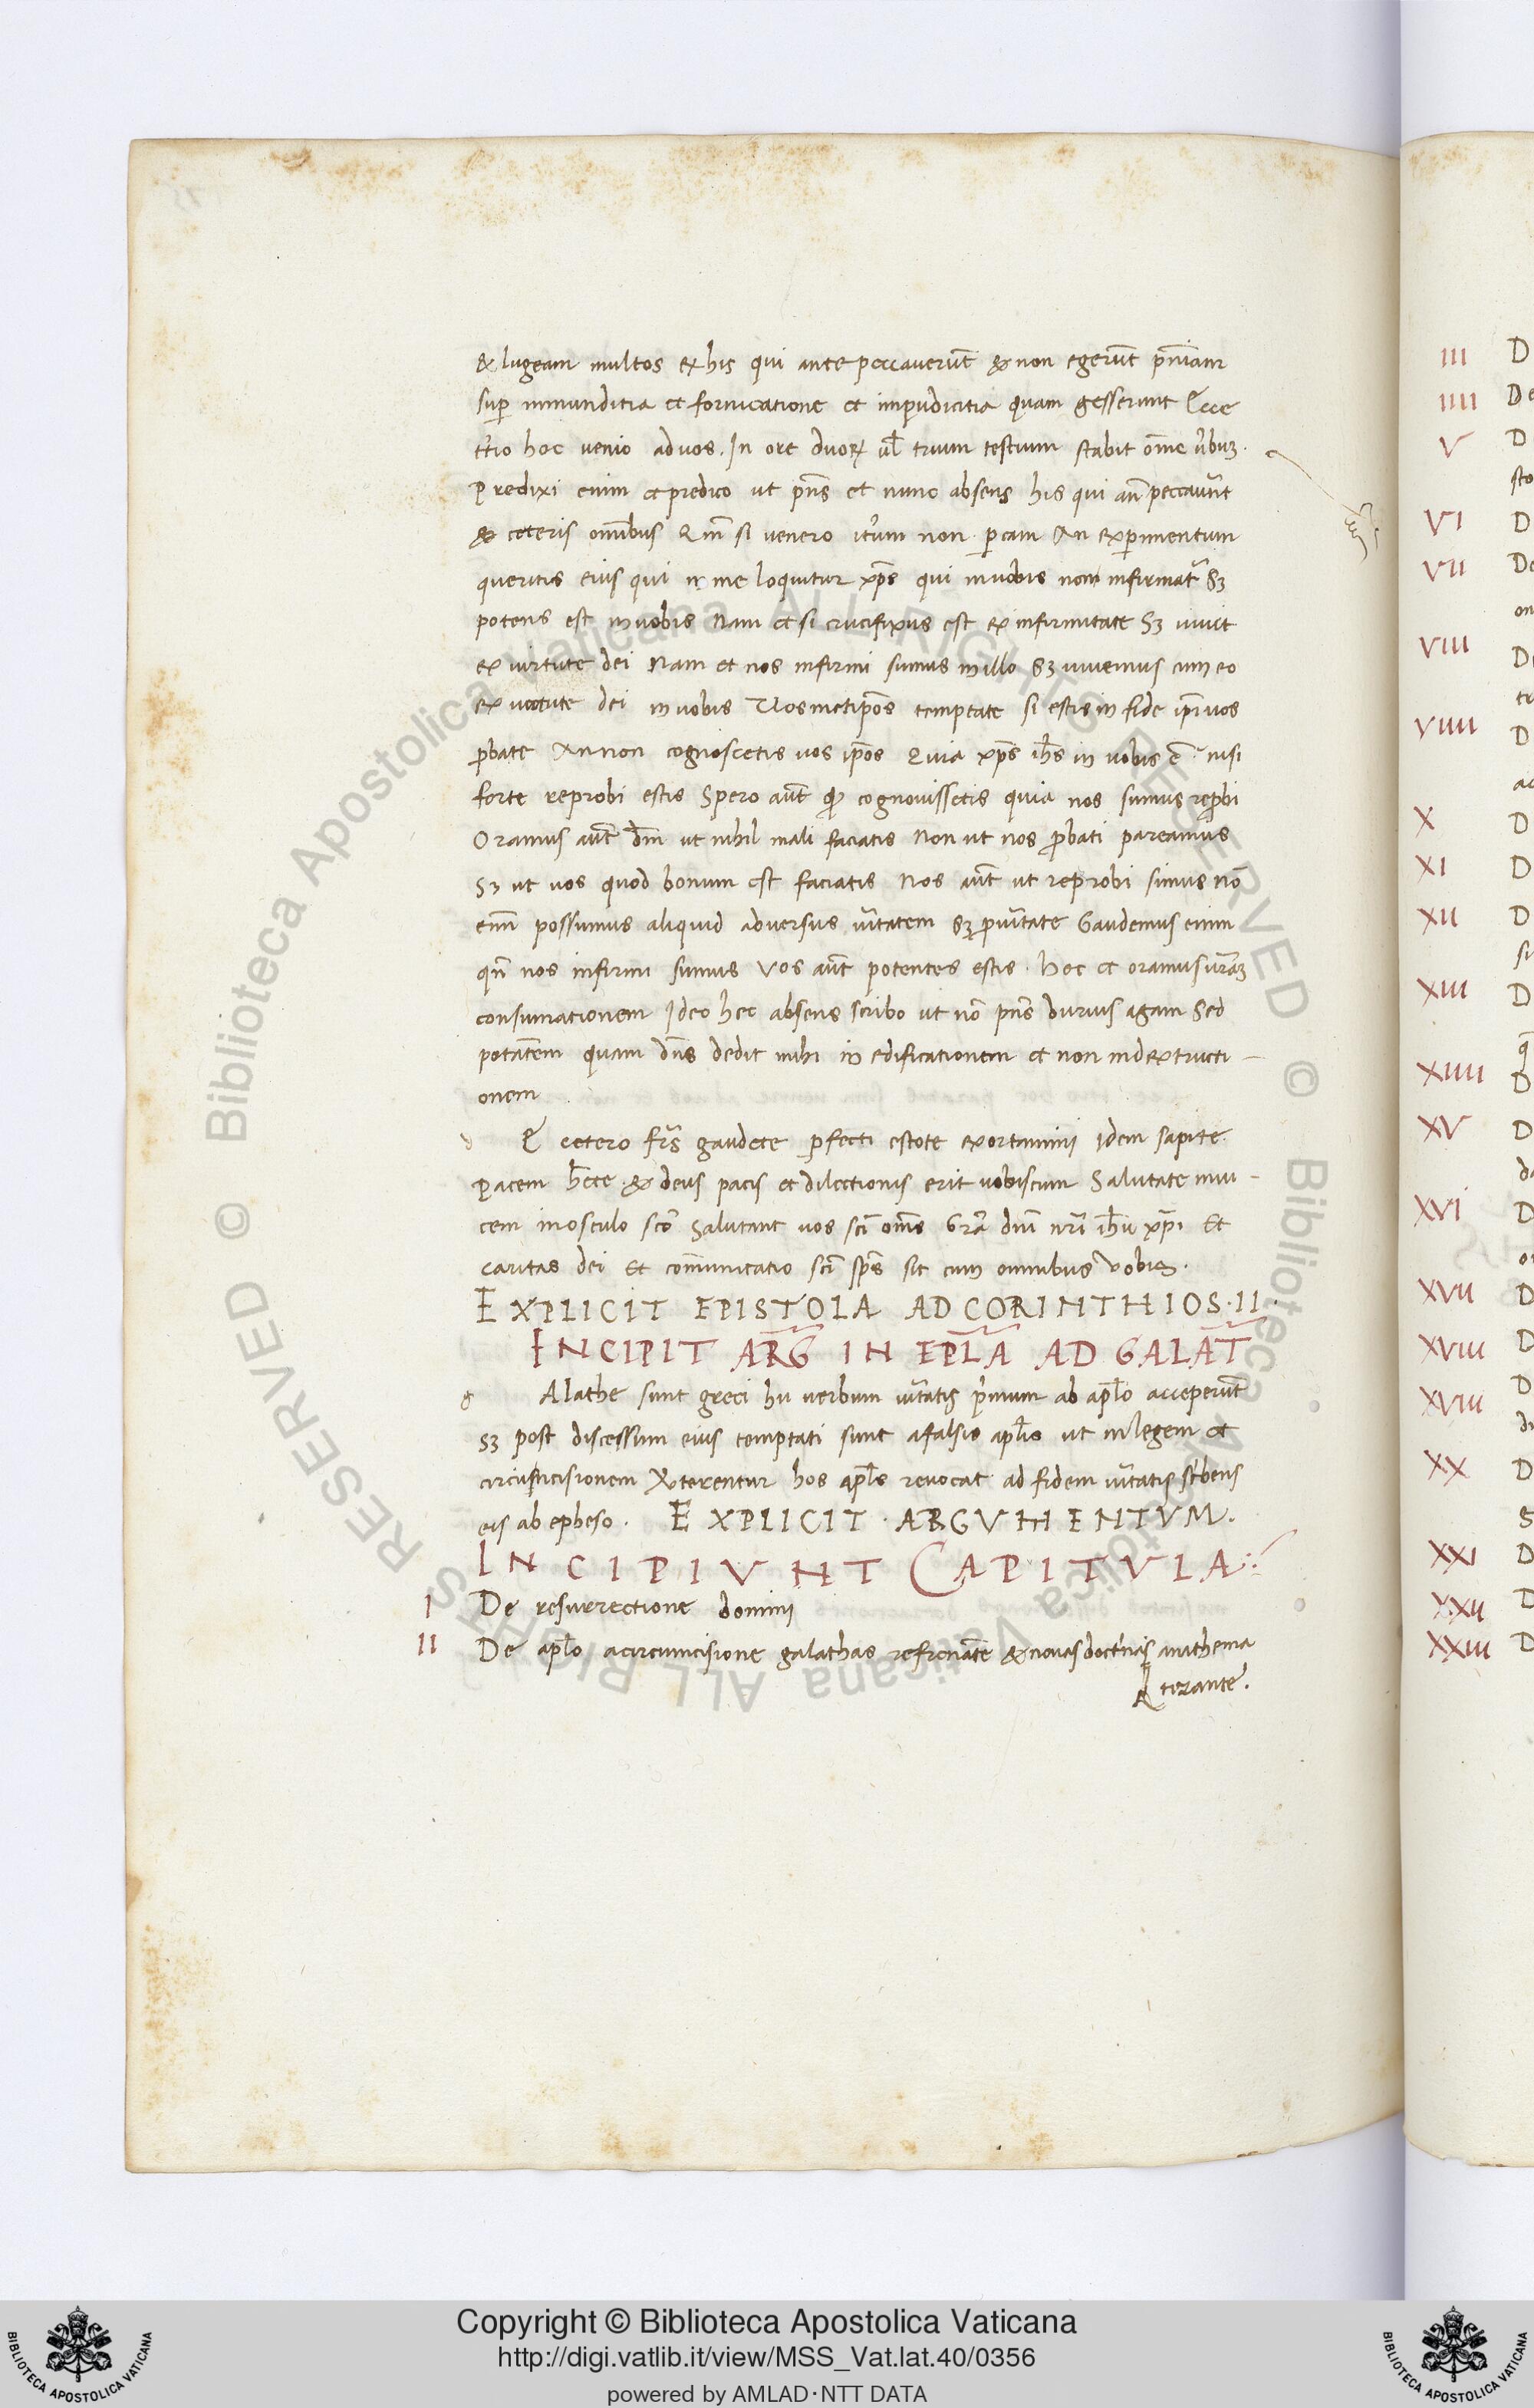 & lugeam multos ex his qui ante peccaverūt & non egerūt pniam̄
sup̄ inmunditia et fornicatione et impudicitia quam gesserunt Ecce
t̄tio hoc venio ad vos. In ore duorꝝ ul̄ trium testium stabit om̄e v̄bum.
Predixi enim et predico ut pn̄s et nunc absens his qui an̄ peccaūnt
& ceteris om̄ibus Qm̄ si venero it̄um non p̱cam An exp̱imentum
queritis eius qui in me loquitur xp̄s qui in uobis non infirmat̄ Sꝫ
potens est in uobis Nam et si crucifixus est ex infirmitate Sꝫ uiuit
ex uirtute dei Nam et nos infirmi sumus in illo Sꝫ uiuemus cum eo
ex uirtute dei in uobis Uosmetip̄os temptate si estis in fide ip̄i uos
ꝓbate An non cognoscetis uos ip̄os Quia xp̄s ih̄s in uobis ē nisi
forte reprobi estis Spero aūt qđ cognouissetis quia nos sumus reꝓbi
Oramus aūt dm̄ ut nihil mali faciatis Non ut nos ꝓbati pareamus
Sꝫ ut uos quod bonum est faciatis Nos aūt ut reprobi simus nō
enī possumus aliquid adversus ūitatem sꝫ p̱ ūitate Gaudemus enim
qn̄ nos infirmi sumus Vos aūt potentes estis. hoc et oramus ur̄am
consumationem Ideo hec absens scribo ut nō pn̄s durius agam Sed
potatēm quam dn̄s dedit mihi in edificationem et non in dextructi-
onem
d E cetero fr̄s gaudete p̱fecti estote exortamini idem sapite
Pacem h̄ete. & deus pacis et dilectionis erit uobiscum Salutate inui-
cem in osculo scō Salutant uos scī om̄s Gr̄a dnī nr̄i ih̄u xp̄i Et
caritas dei Et com̄unicatio scī sp̄s sit cum omnibus vobis.
EXPLICIT EPISTOLA AD CORINTHIOS·II·
INCIPIT ARG̅ IN EPL̅A AD GALAT̅
g Alathe sunt greci hii uerbum ūitatis p̄mum ab apl̄o acceperūt
Sꝫ post discessum eius temptati sunt a falsis apl̄is ut in legem et
circumcisionem v̄terentur hos apl̄s reuocat ad fidem ūitatis sc̄bens
eis ab epheso. EXPLICIT · ARGVMENTVM.
INCIPIVNT CAPITVLA:
I De resurrectione domini
II De apl̄o a circumcisione galathas refrenāte & nouas doct̄nas anathema
tizante.
III D
IIII De
V D
sto
VI D
VII De
on
VIII De
tr
VIIII D
ac
X D
XI D
XII D
si
XIII D
q
XIIII D
XV D
da
XVI D
or
XVII D
XVIII D
XVIIII D
di
XX D
S
XXI D
XXII D
XXIII D
© Biblioteca Apostolica Vaticana ALL RIGHTS RESERVED © Biblioteca Apostolica Vaticana ALL RIGHTS RESERVED
Copyright © Biblioteca Apostolica Vaticana
http://digi.vatlib.it/view/MSS_Vat.lat.40/0356
powered by AMLAD·NTT DATA
BIBLIOTECA APOSTOLICA VATICANA
BIBLIOTECA APOSTOLICA VATICANA